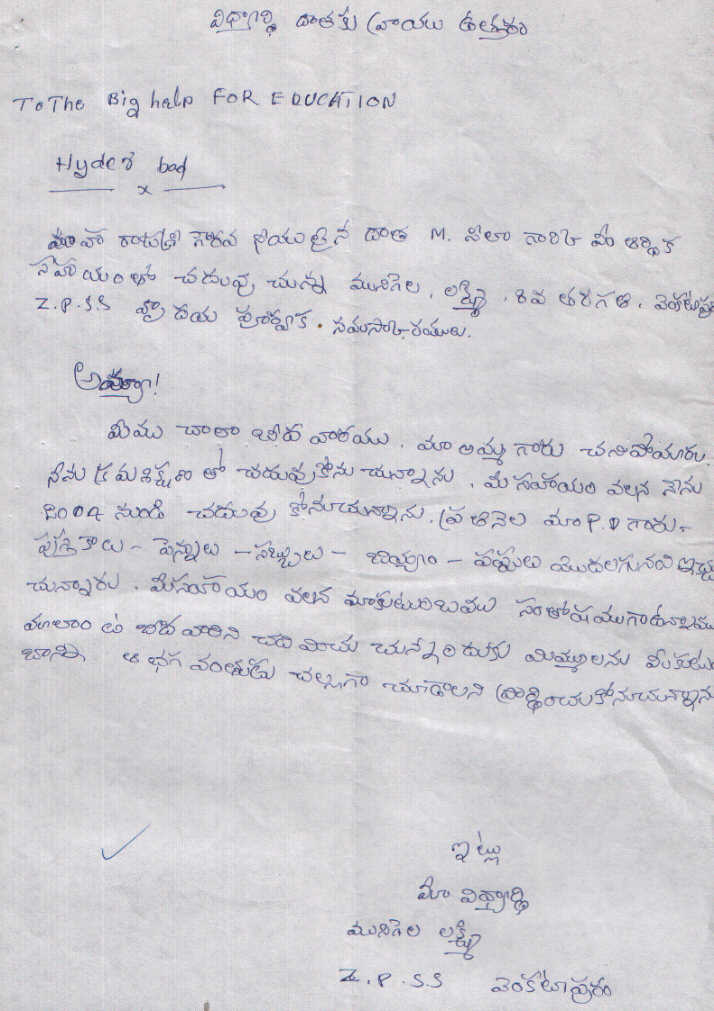 విద్యార్థి దాతకు వ్రాయు ఉత్తరం
To The Big help FOR EDUCATION
Hyder bad
x
మహా రాజశ్రీ గౌరవ నీయులైన దాత M. నీలా గారికి మీ ఆర్థిక
సహాయంతో చదువు చున్న మునిగెల . లక్ష్మి .
Z.P.S.S హృదయ పూర్వక . నమస్కారములు.
అయ్యా!
మేము చాలా బీద వారము . మా అమ్మ గారు చనిపోయారు.
నేను క్రమశిక్షణ తో చదువుకోను చున్నాను . మీ సహాయం వలన నేను
2004 నుండి చదువు కోనుచున్నాను. ప్రతినెల మా P.D గారు -
పుస్తకాలు - పెన్నులు - సబ్బులు - బియ్యం - పప్పులు మొదలగునవి ఇచ్చు
చున్నారు . మీసహాయం వలన మాకుటుంబము సంతోషముగా ఉన్నాము
మాలాం టి బీద వారిని చది వించు చున్నందుకు మిమ్ములను మీకుటుం
బాన్ని ఆ భగ వంతుడు చల్లగా చూడాలని ప్రార్థించుకోనుచున్నాను
ఇట్లు
మీ విద్యార్థి
మునిగెల లక్ష్మి
Z.P.S.S వెంకటాపురం